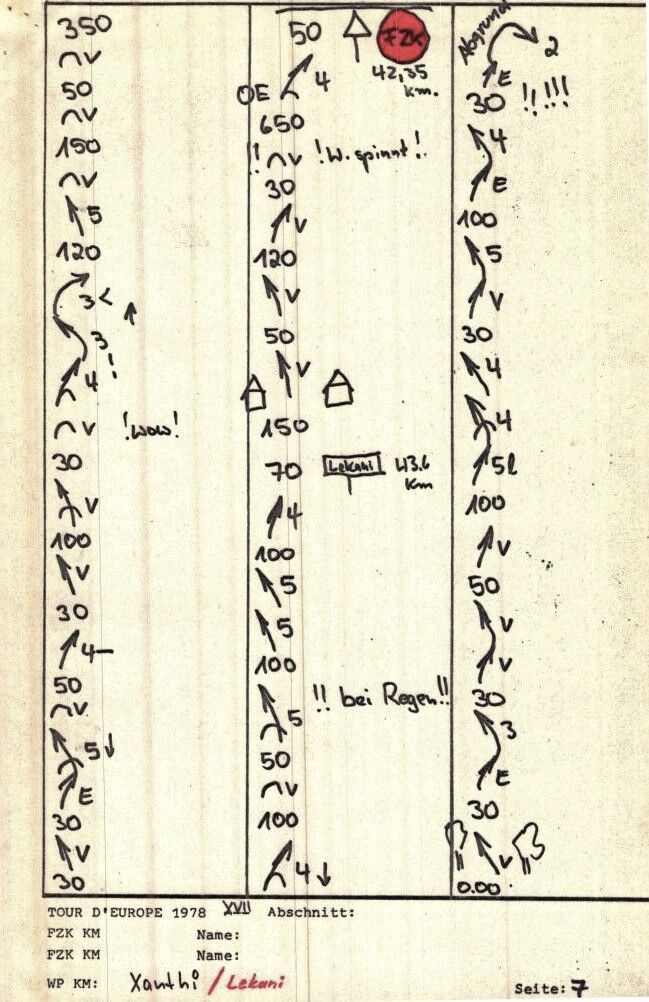 350
V
50
V
150
V
5
120
3<
3
!
4
V
!Wow!
30
V
100
V
30
4–
50
V
5
E
30
V
30
50
FZK
42,35
km.
OE
4
650
!! V !W. spinnt!
30
V
120
V
50
V
150
70
Lekani
43.6
Km
4
100
5
5
100
5
!! bei Regen!!
50
V
100
4
Abgrund
2
E
30 !! !!!
4
E
100
5
V
30
4
4
5l
100
V
50
V
V
30
3
E
30
V
0.00
TOUR D'EUROPE 1978 XVII Abschnitt:
FZK KM Name:
FZK KM Name:
WP KM: Xanthi / Lekani
Seite: 7